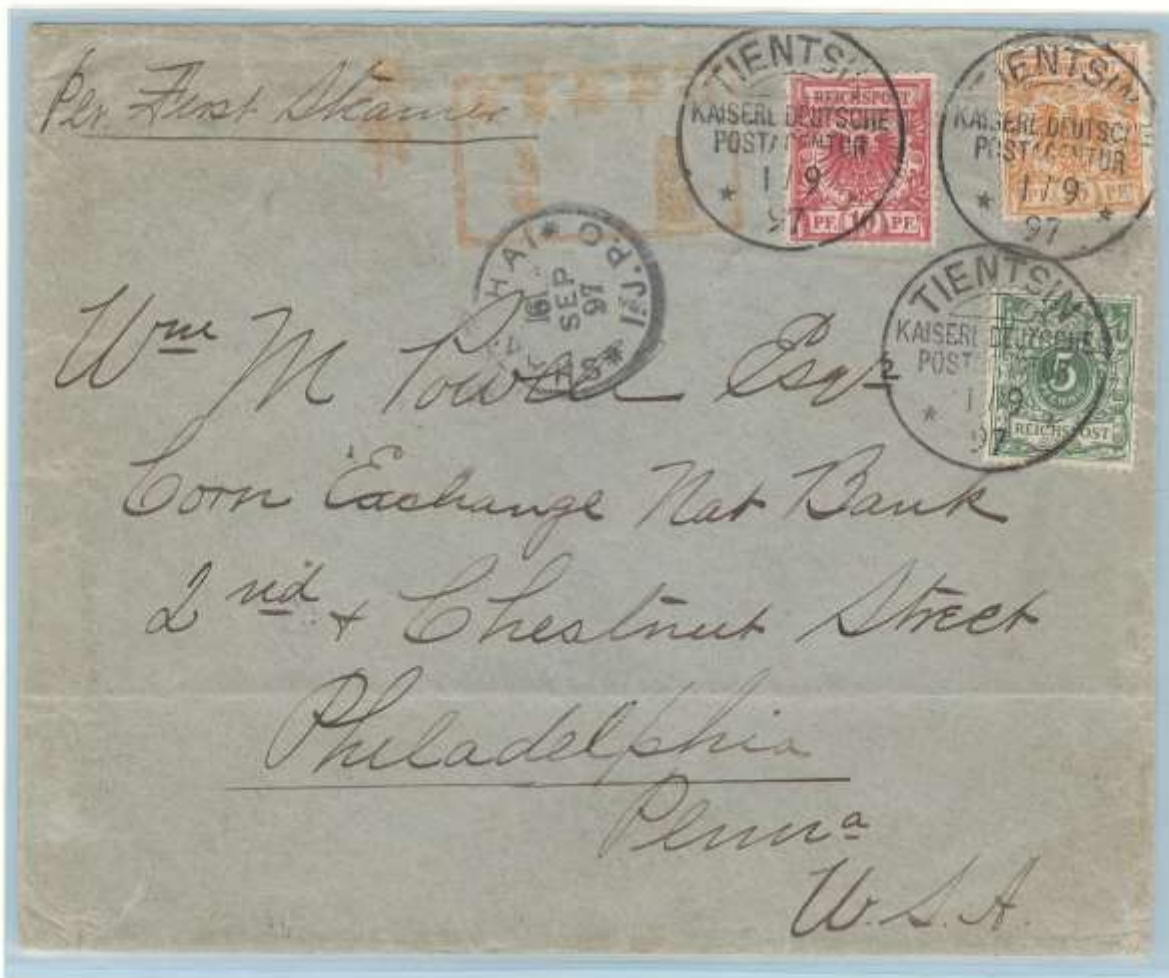 Per First Steamer
TIENTSIN
KAISERL DEUTSCHE
POSTAGENTUR
1/9
97
REICHSPOST
PF 10 PF
TIENTSIN
KAISERL DEUTSCHE
POSTAGENTUR
1/9
97
PF
I.J.P.O
16
SEP
97
TIENTSIN
KAISERL DEUTSCHE
POST
1 9
97
5
REICHSPOST
Wm M Powell Esqr
Corn Exchange Nat Bank
2nd + Chestnut Street
Philadelphia
Penna
U.S.A.